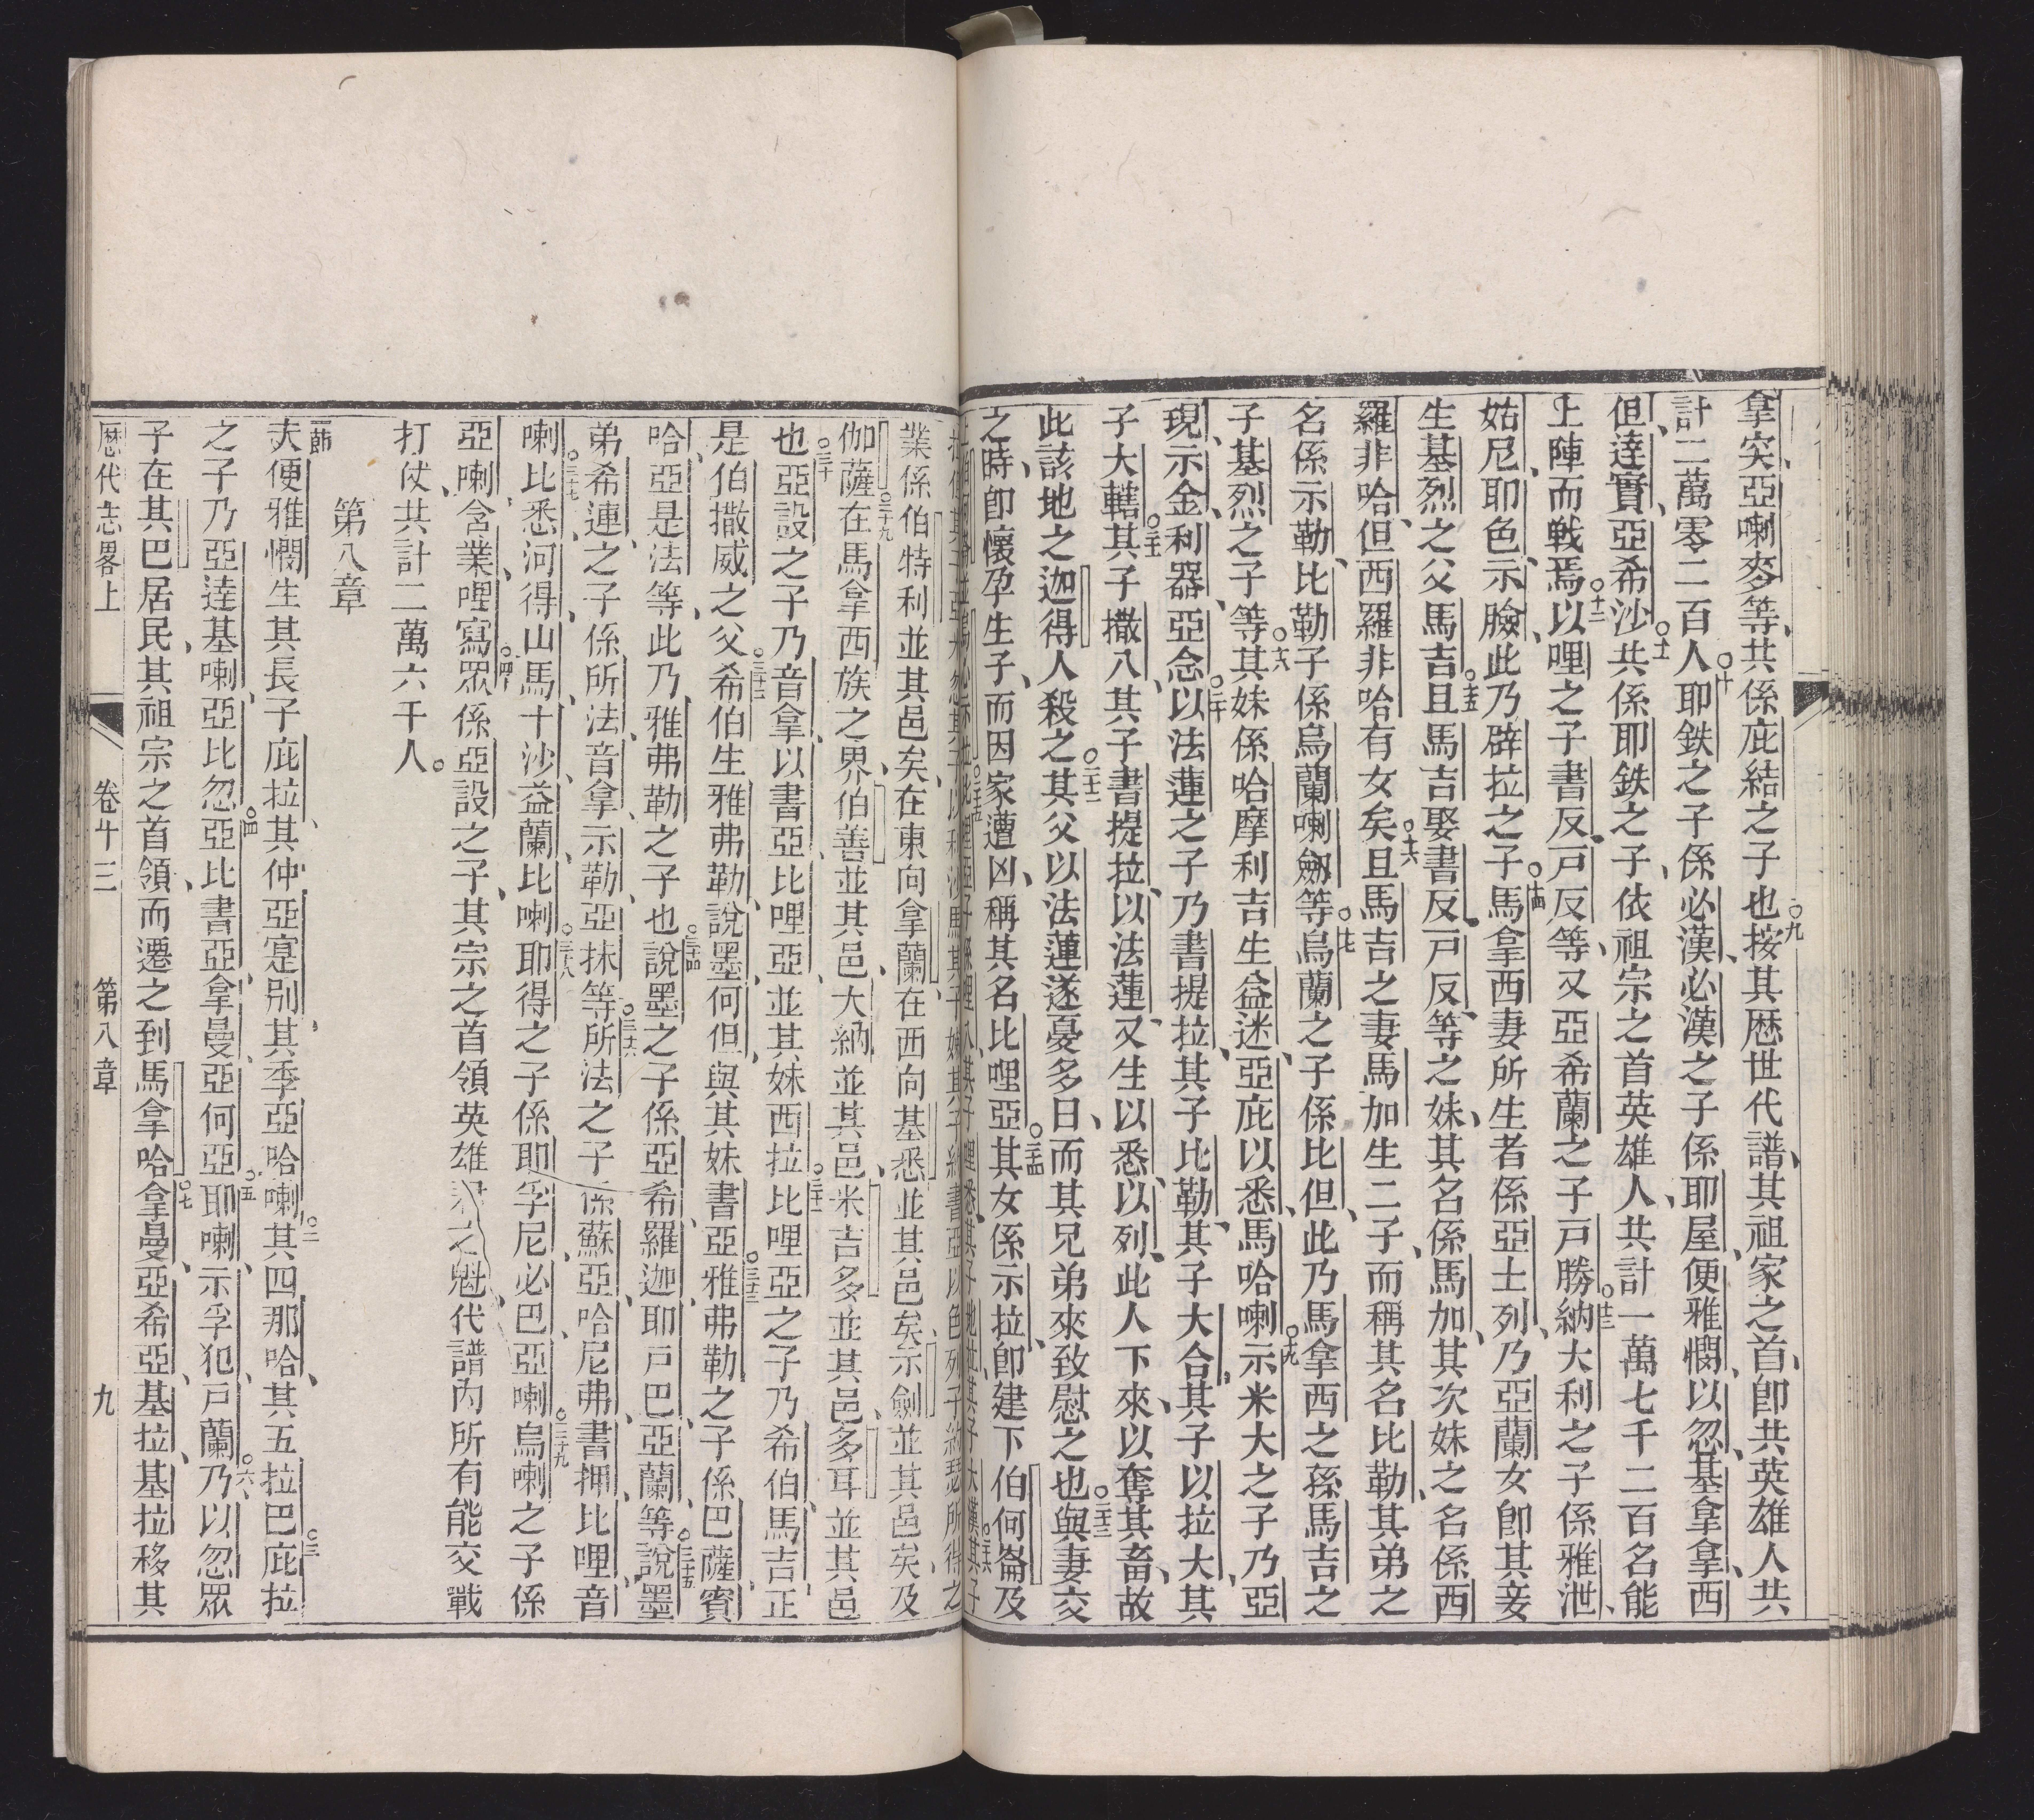 拿突亞喇麥等、共係庇結之子也○九按其歷世代譜、其祖家之首、卽共英雄人共
計二萬零二百人○十耶鉄之子係必漢、必漢之子係耶屋、便雅憫、以忽、基拿拿、西
但、達實、亞希沙○十一共係耶鉄之子、依祖宗之首英雄人、共計一萬七千二百名能
上陣而戰焉○十二以哩之子書反、戸反等、又亞希蘭之子戸勝○十三納大利之子係雅泄、
姑尼、耶色、示臉、此乃辟拉之子○十四馬拿西妻所生者係亞士列、乃亞蘭女卽其妾
生基烈之父馬吉○十五且馬吉娶書反、戸反、等之妹、其名係馬加、其次妹之名係西
羅非哈、但西羅非哈有女矣○十六且馬吉之妻馬加生二子、而稱其名比勒、其弟之
名係示勒、比勒子係烏蘭喇劔等○十七烏蘭之子係比但、此乃馬拿西之孫馬吉之
子基烈之子等○十八其妹係哈摩利吉生益迷、亞庇以悉、馬哈喇○十九示米大之子乃亞
現、示金、利器、亞念○二十以法蓮之子乃書提拉、其子比勒、其子大合、其子以拉大、其
子大轄○二十一其子撒八、其子書提拉、以法蓮、又生以悉、以列、此人下來、以奪其畜、故
此該地之迦得人殺之○二十二其父以法蓮遂憂多日、而其兄弟來致慰之也○二十三與妻交
之時、卽懷孕生子、而因家遭凶、稱其名比哩亞○二十四其女係示拉、卽建下伯何崙及
業係伯特利並其邑矣、在東向拿蘭、在西向基悉、並其邑矣、示劍並其邑矣、及
伽薩○二十九在馬拿西族之界、伯善、並其邑、大納並其邑、米吉多、並其邑、多耳、並其邑
也○三十亞設之子乃音拿、以書亞、比哩亞、並其妹西拉○三十一比哩亞之子乃希伯、馬吉、正
是伯撒威之父○三十二希伯生雅弗勒、說墨、何但、與其妹書亞○三十三雅弗勒之子係巴薩、賓
哈、亞是法等、此乃雅弗勒之子也○三十四說墨之子係亞希、羅迦、耶戸巴、亞蘭等○三十五說墨
弟希連、之子係所法、音拿、示勒、亞抹等○三十六所法之子係蘇亞、哈尼弗、書押、比哩、音
喇○三十七比悉、河得、山馬、十沙、益蘭、比喇○三十八耶得之子係耶孚尼、必巴、亞喇○三十九烏喇之子係
亞喇、含業、哩寫○四十眾係亞設之子、其宗之首領英雄之魁、代譜內所有能交戰
打仗、共計二萬六千人。
第八章
一節夫便雅憫生其長子庇拉、其仲亞寔別、其季亞哈喇○二其四那哈、其五拉巴○三庇拉
之子乃亞達、基喇、亞比忽○四亞比書亞、拿曼、亞何亞○五耶喇、示孚犯、戸蘭○六乃以忽眾
子在其巴居民、其祖宗之首領、而遷之到馬拿哈○七拿曼、亞希亞、基拉、基拉移其
歷代志畧上 卷十三 第八章 九